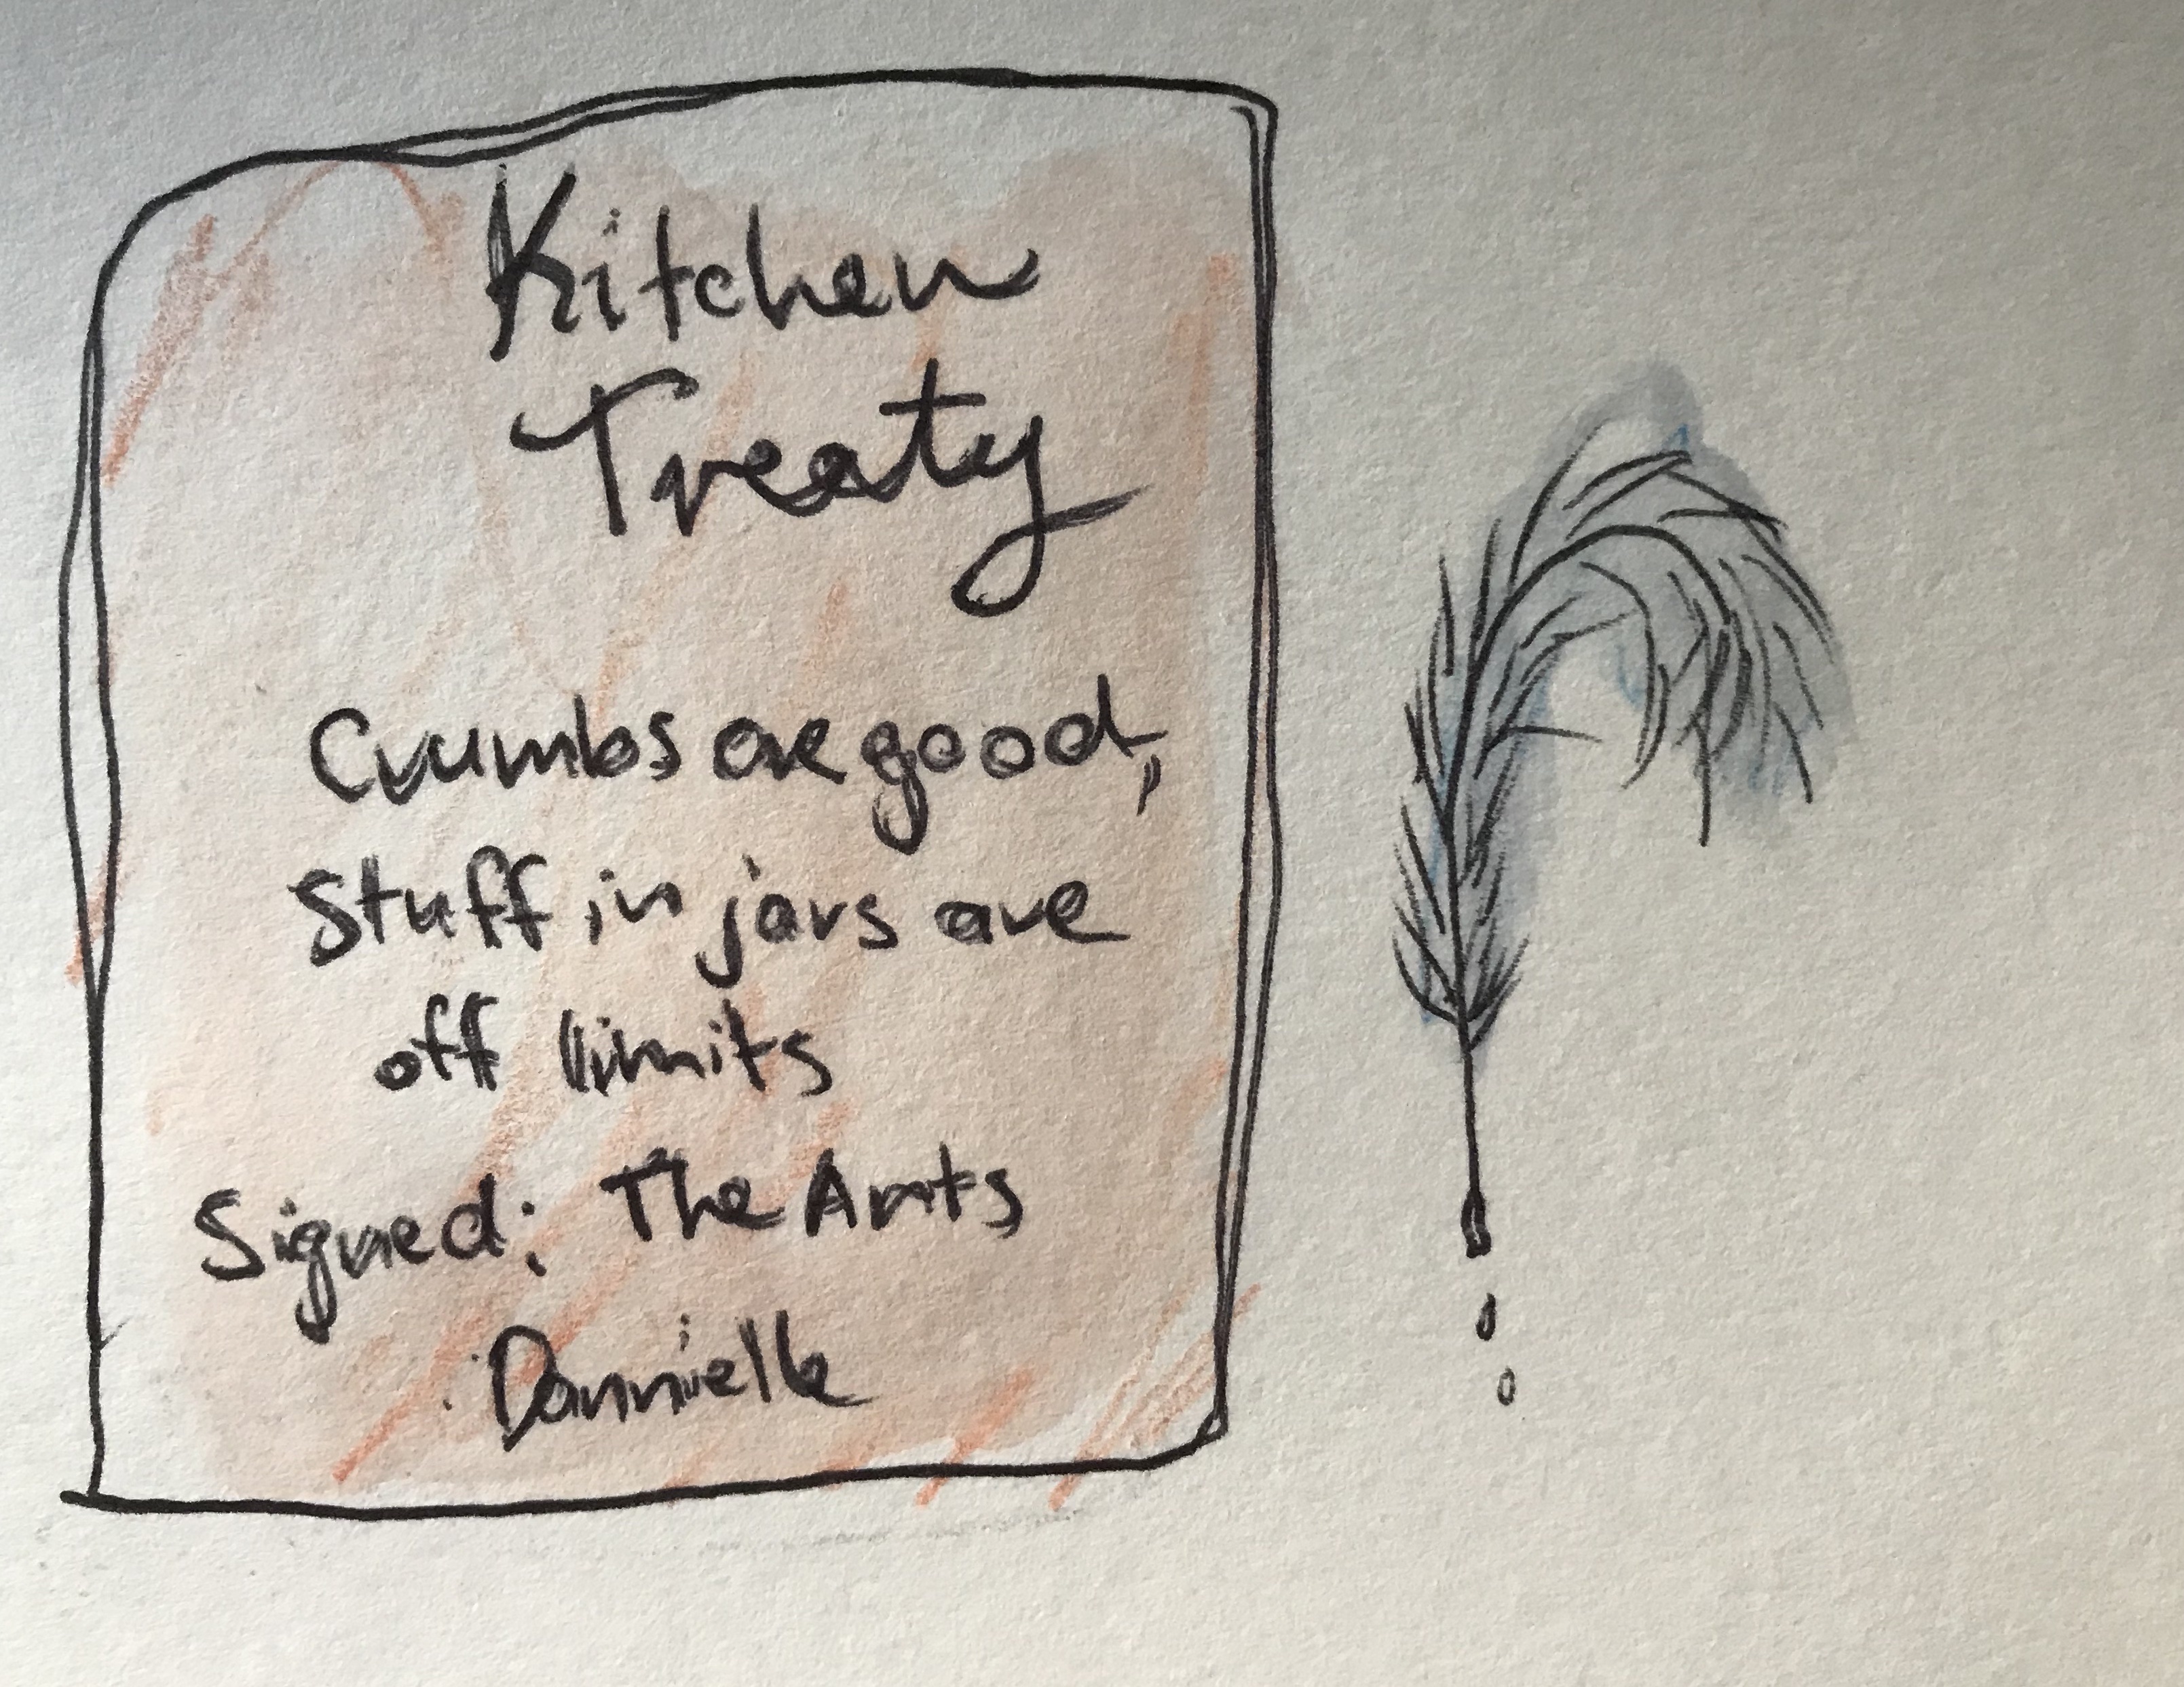 Kitchen
Treaty
Crumbs are good,
Stuff in jars are
off limits
Signed: The Ants
Dannielle